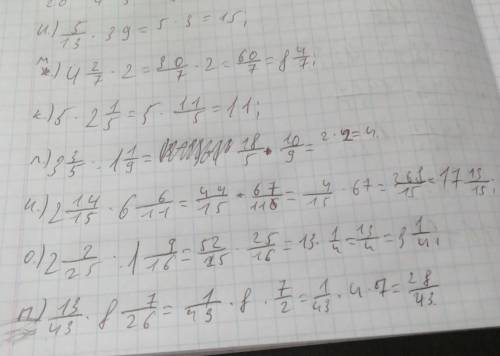 и.) 5/13 · 39 = 5 · 3 = 15;
м) 4 2/7 · 2 = 30/7 · 2 = 60/7 = 8 4/7;
к) 5 · 2 1/5 = 5 · 11/5 = 11;
л) 3 3/5 · 1 1/9 = 18/5 · 10/9 = 2 · 2 = 4.
н.) 2 14/15 · 6 6/11 = 44/15 · 67/11 = 4/15 · 67 = 268/15 = 17 13/15.
о.) 2 2/25 · 1 9/16 = 52/25 · 25/16 = 13 · 1/4 = 13/4 = 3 1/4;
п) 13/43 · 8 7/26 = 1/43 · 8 · 7/2 = 1/43 · 4 · 7 = 28/43